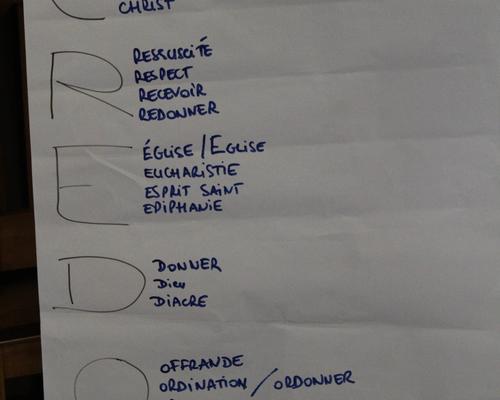 CHRIST
R
RESSUSCITÉ
RESPECT
RECEVOIR
REDONNER
E
ÉGLISE / EGLISE
EUCHARISTIE
ESPRIT SAINT
EPIPHANIE
D
DONNER
DIEU
DIACRE
O
OFFRANDE
ORDINATION / ORDONNER